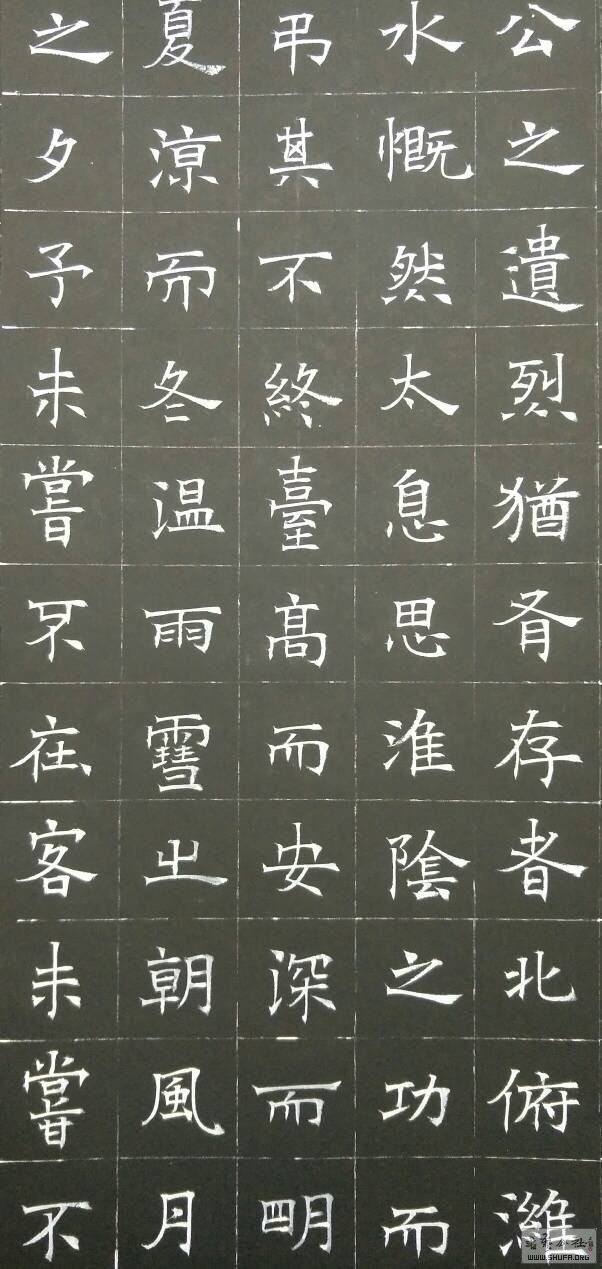 公之遺烈猶有存者北俯濰
水慨然太息思淮陰之功而
弔其不終臺髙而安深而明
夏涼而冬温雨雪之朝風月
之夕予未嘗不在客未嘗不
WWW.SHUFA.ORG